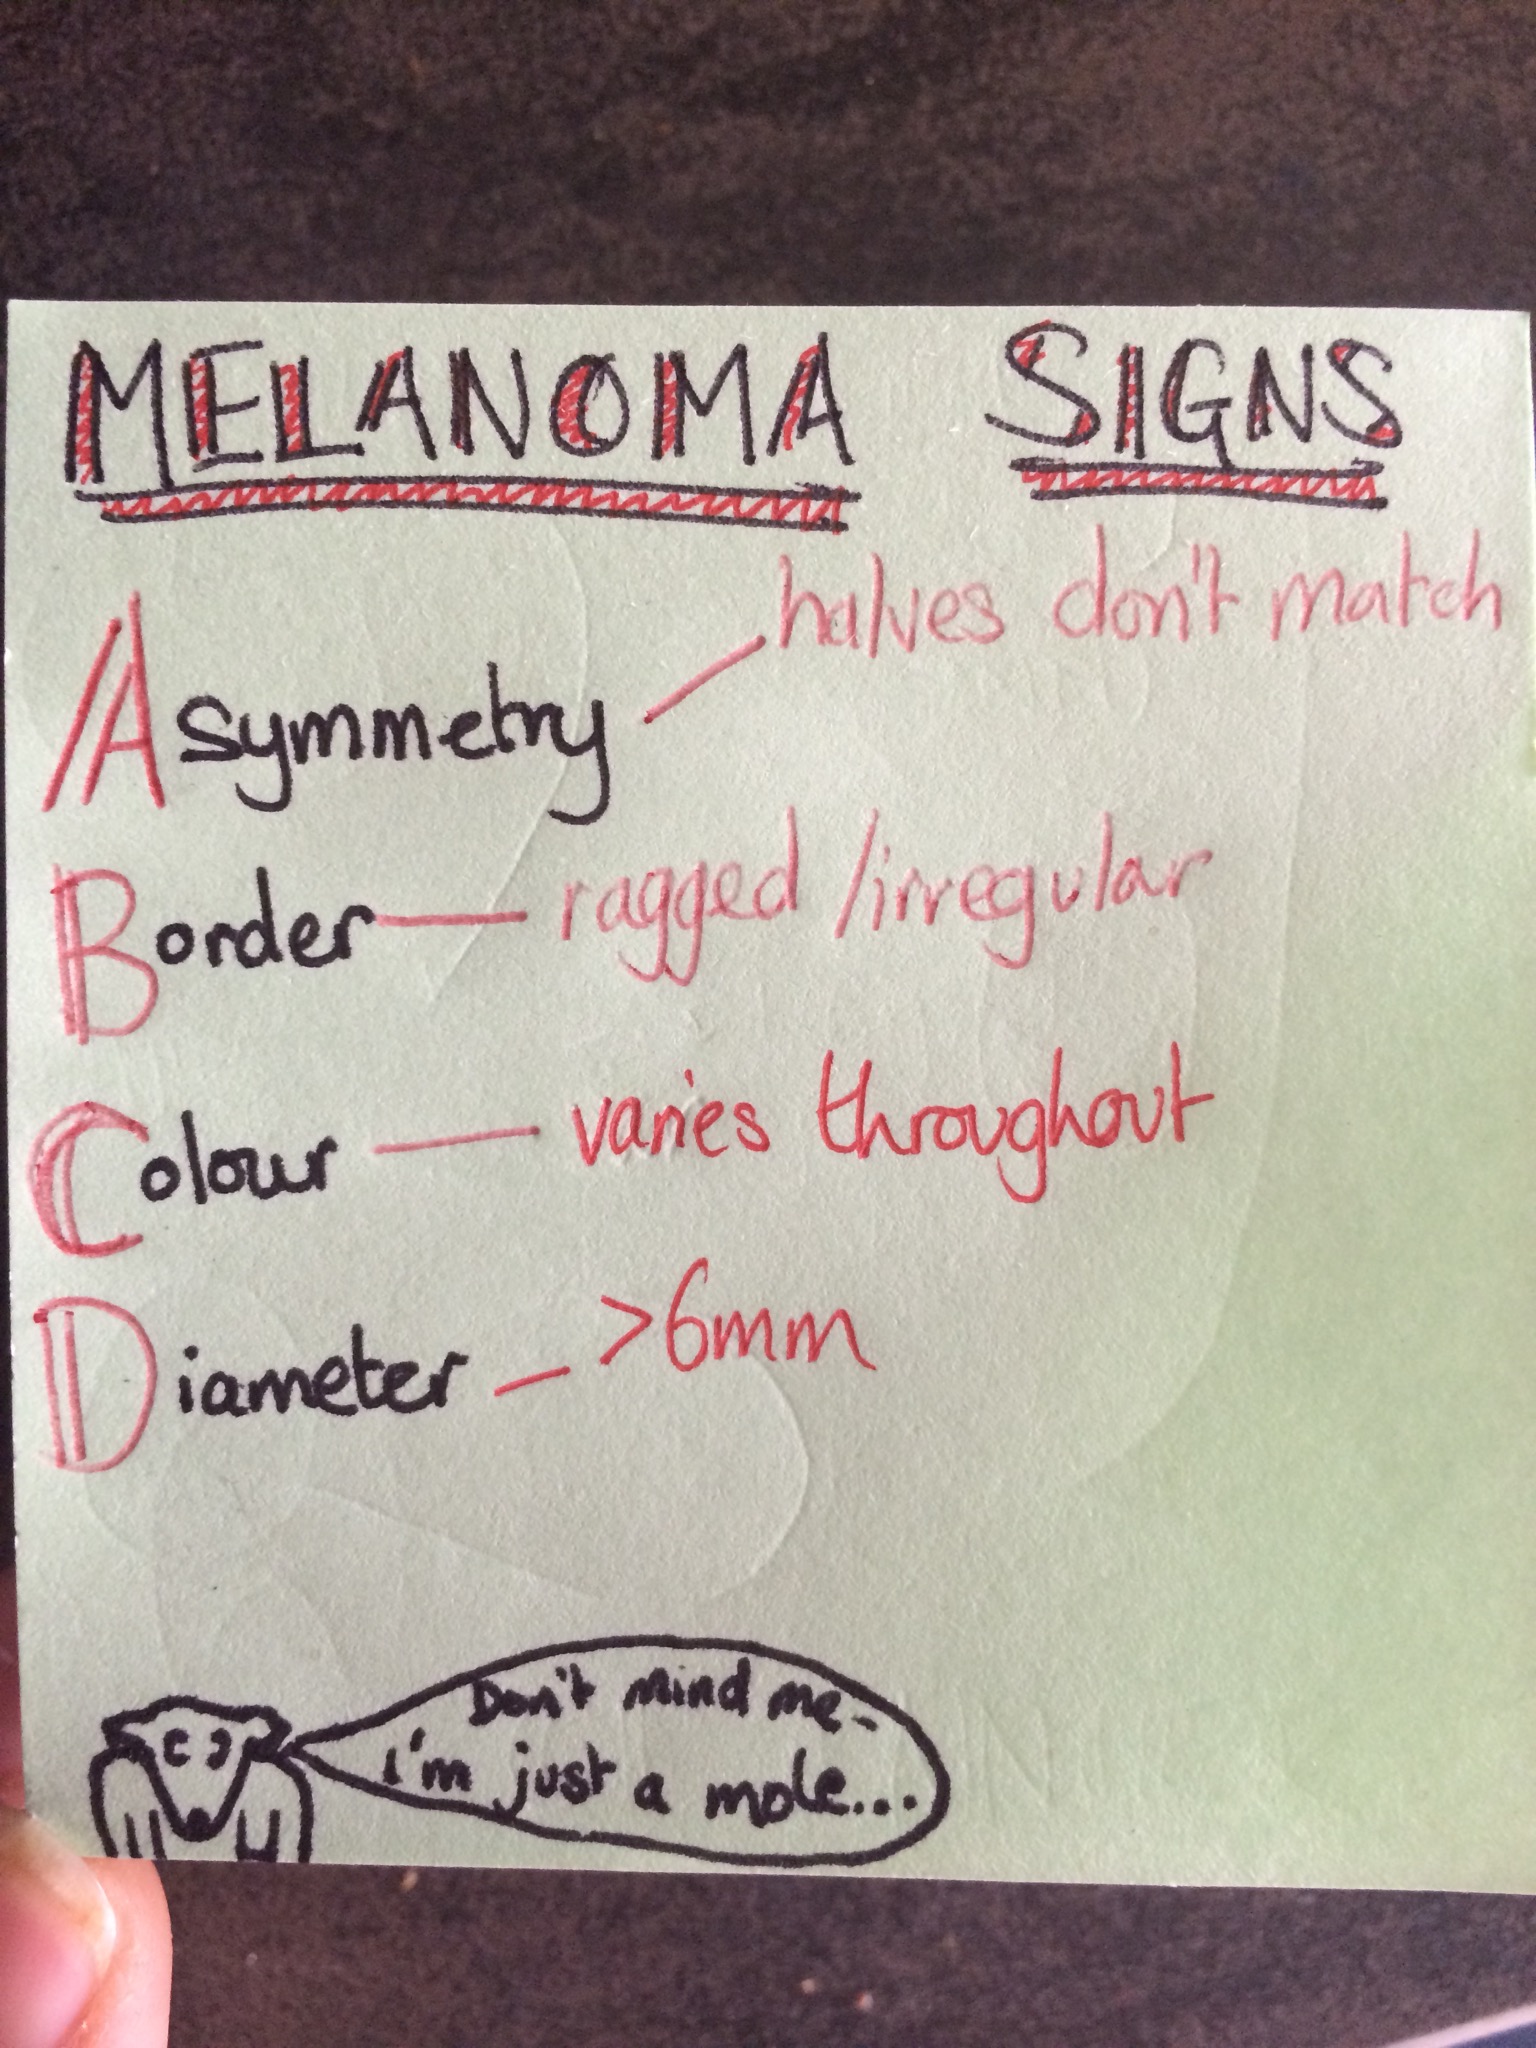 MELANOMA SIGNS
Asymmetry — halves don't match
Border — ragged /irregular
Colour — varies throughout
Diameter — >6mm
Don't mind me-
i'm just a mole...